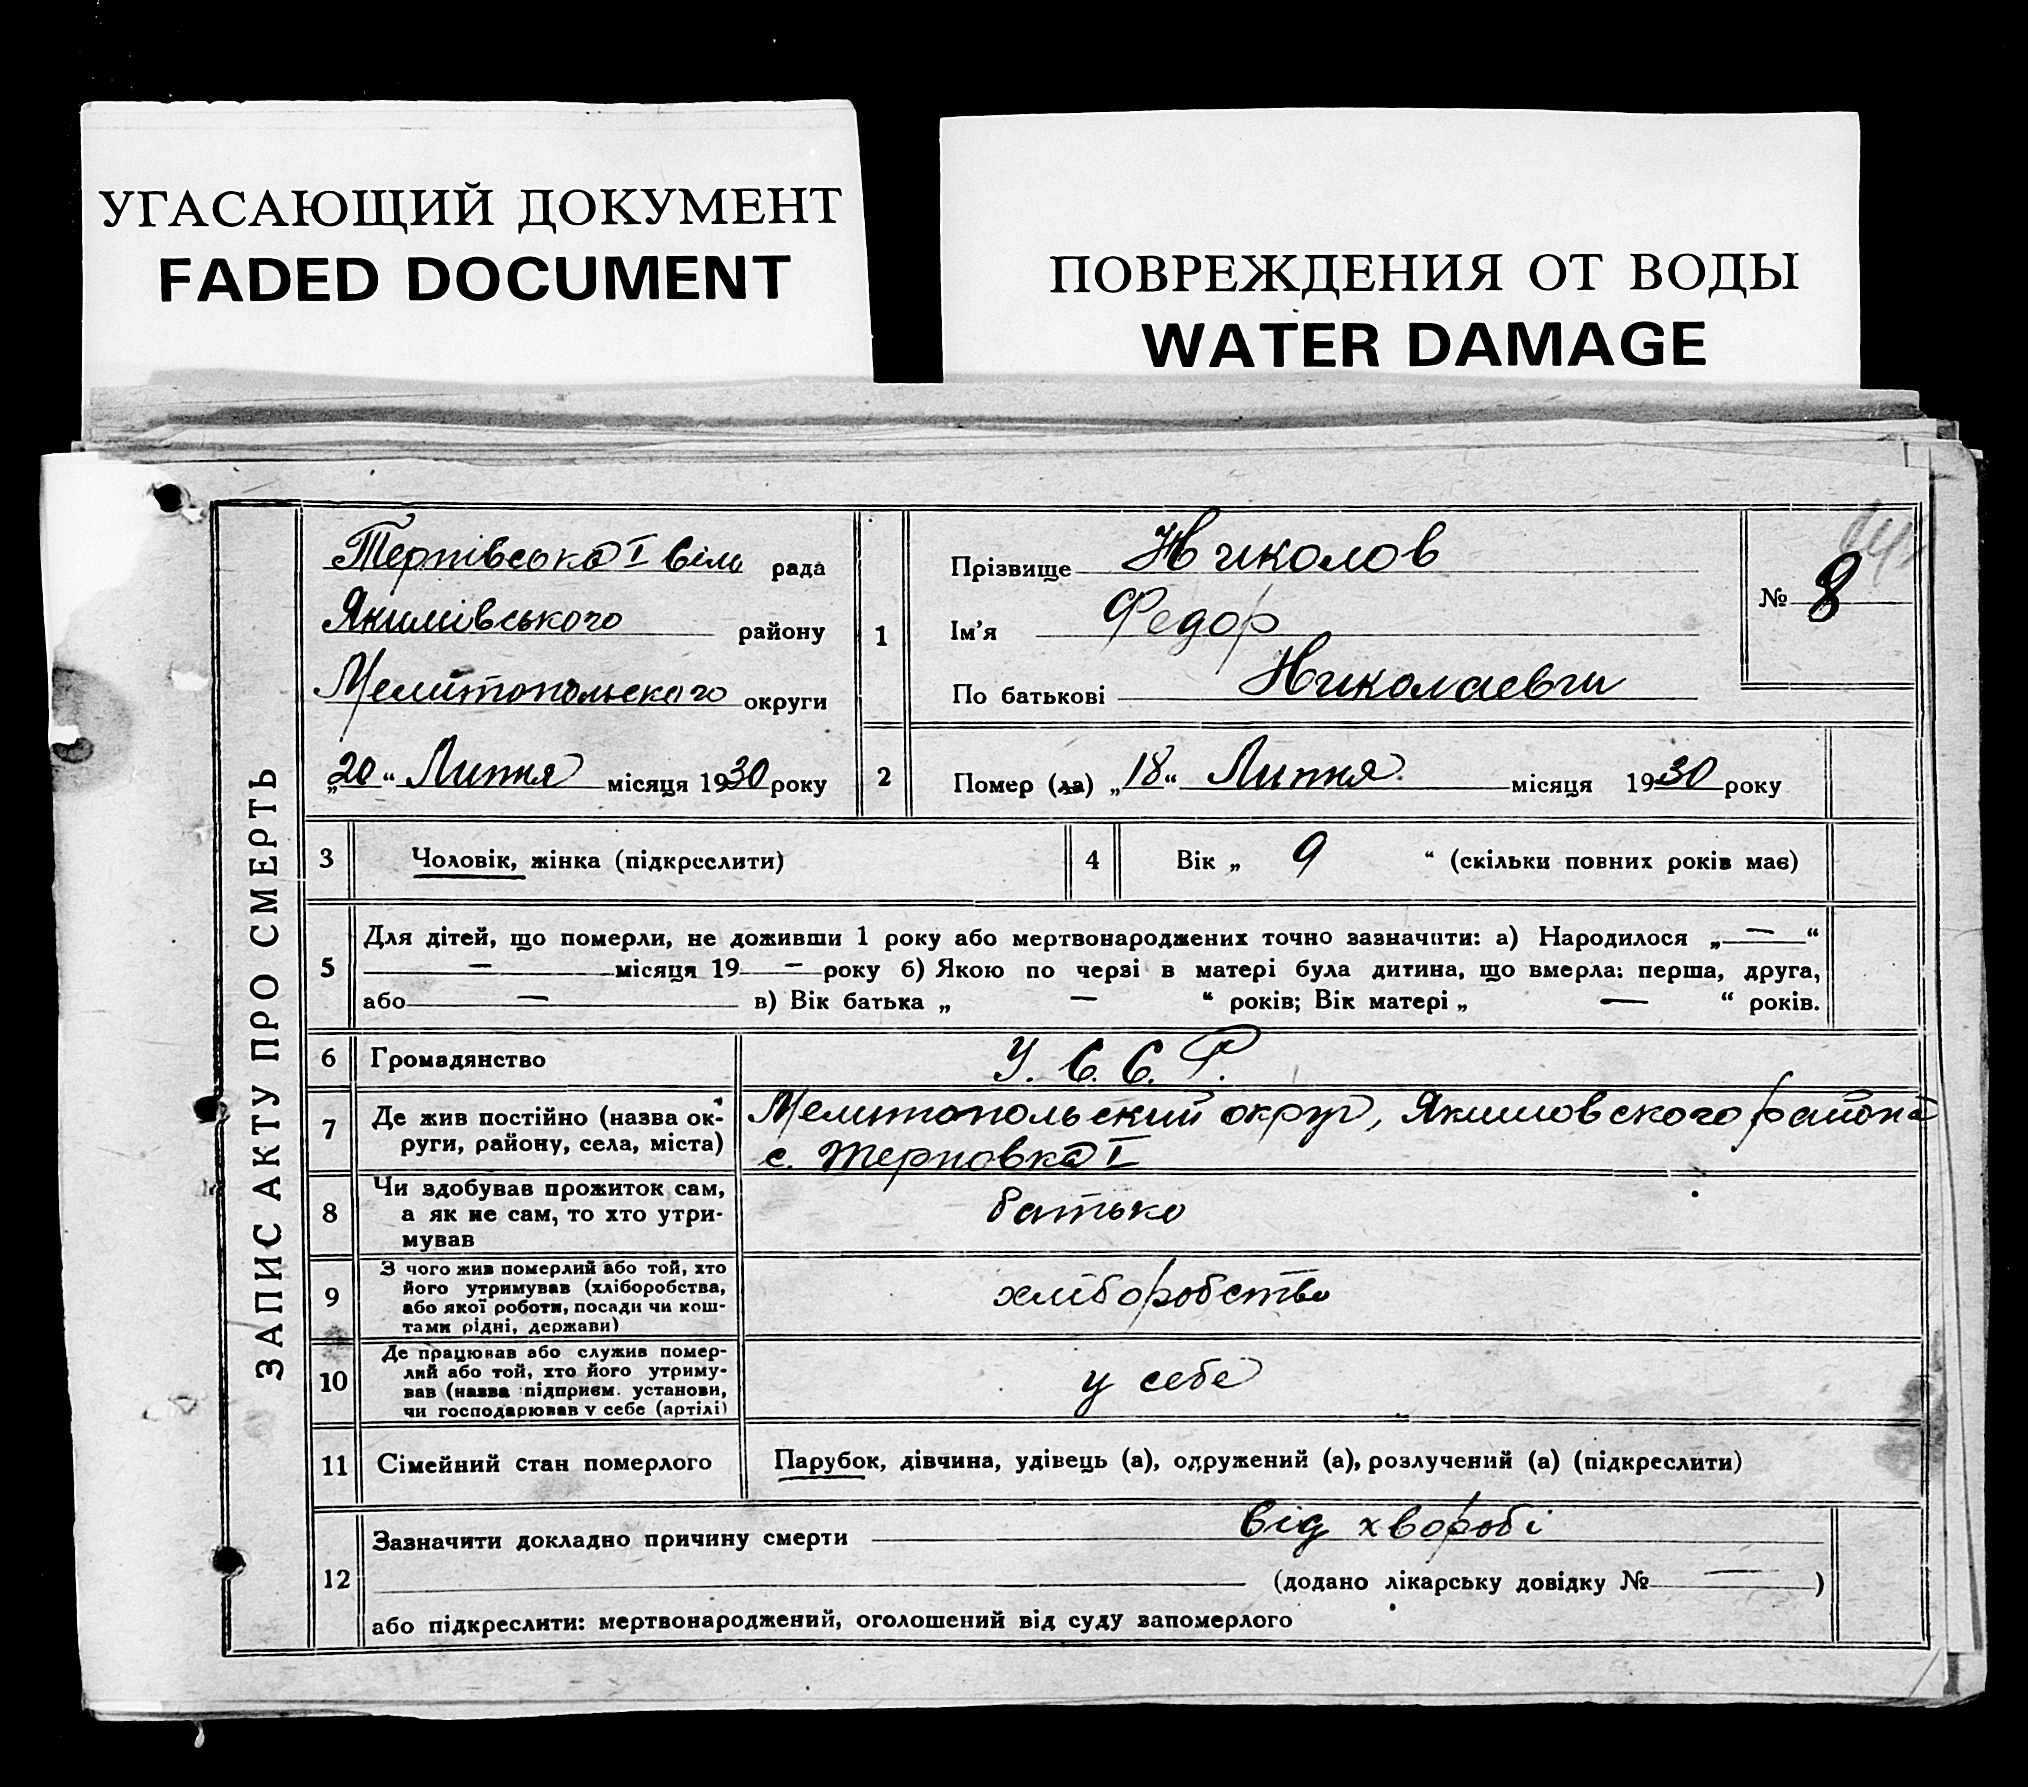 УГАСАЮЩИЙ ДОКУМЕНТ
FADED DOCUMENT
ПОВРЕЖДЕНИЯ ОТ ВОДЫ
WATER DAMAGE
ЗАПИС АКТУ ПРО СМЕРТЬ
Терпівська I Сіль рада
Якимівського району
Мелитопольского округи
„20“ Липня місяця 1930 року
1
Прізвище Николов
Ім'я Федор
По батькові Николаевич
№ 8
2
Помер (ла) „18“ Липня місяця 1930 року
3 Чоловік, жінка (підкреслити)
4 Вік „ 9 “ (скільки повних років має)
5
Для дітей, що померли, не доживши 1 року або мертвонароджених точно зазначити: а) Народилося „—“
— місяця 19 — року б) Якою по черзі в матері була дитина, що вмерла: перша, друга,
або — в) Вік батька „ — “ років; Вік матері „ — “ років.
6 Громадянство У. С. С. Р.
7
Де жив постійно (назва ок-
руги, району, села, міста)
Мелитопольский округ, Якимовского района
с. Терповка I
8
Чи здобував прожиток сам,
а як не сам, то хто утри-
мував
батько
9
З чого жив померлий або той, хто
його утримував (хліборобства,
або якої роботи, посади чи кош-
тами рідні, держави)
хліборобство
10
Де працював або служив помер-
лий або той, хто його утриму-
вав (назва підприєм. установи,
чи господарював у себе (артілі)
у себе
11 Сімейний стан померлого Парубок, дівчина, удівець (а), одружений (а), розлучений (а) (підкреслити)
12
Зазначити докладно причину смерти від хворобі
(додано лікарську довідку № — )
або підкреслити: мертвонароджений, оголошений від суду запомерлого